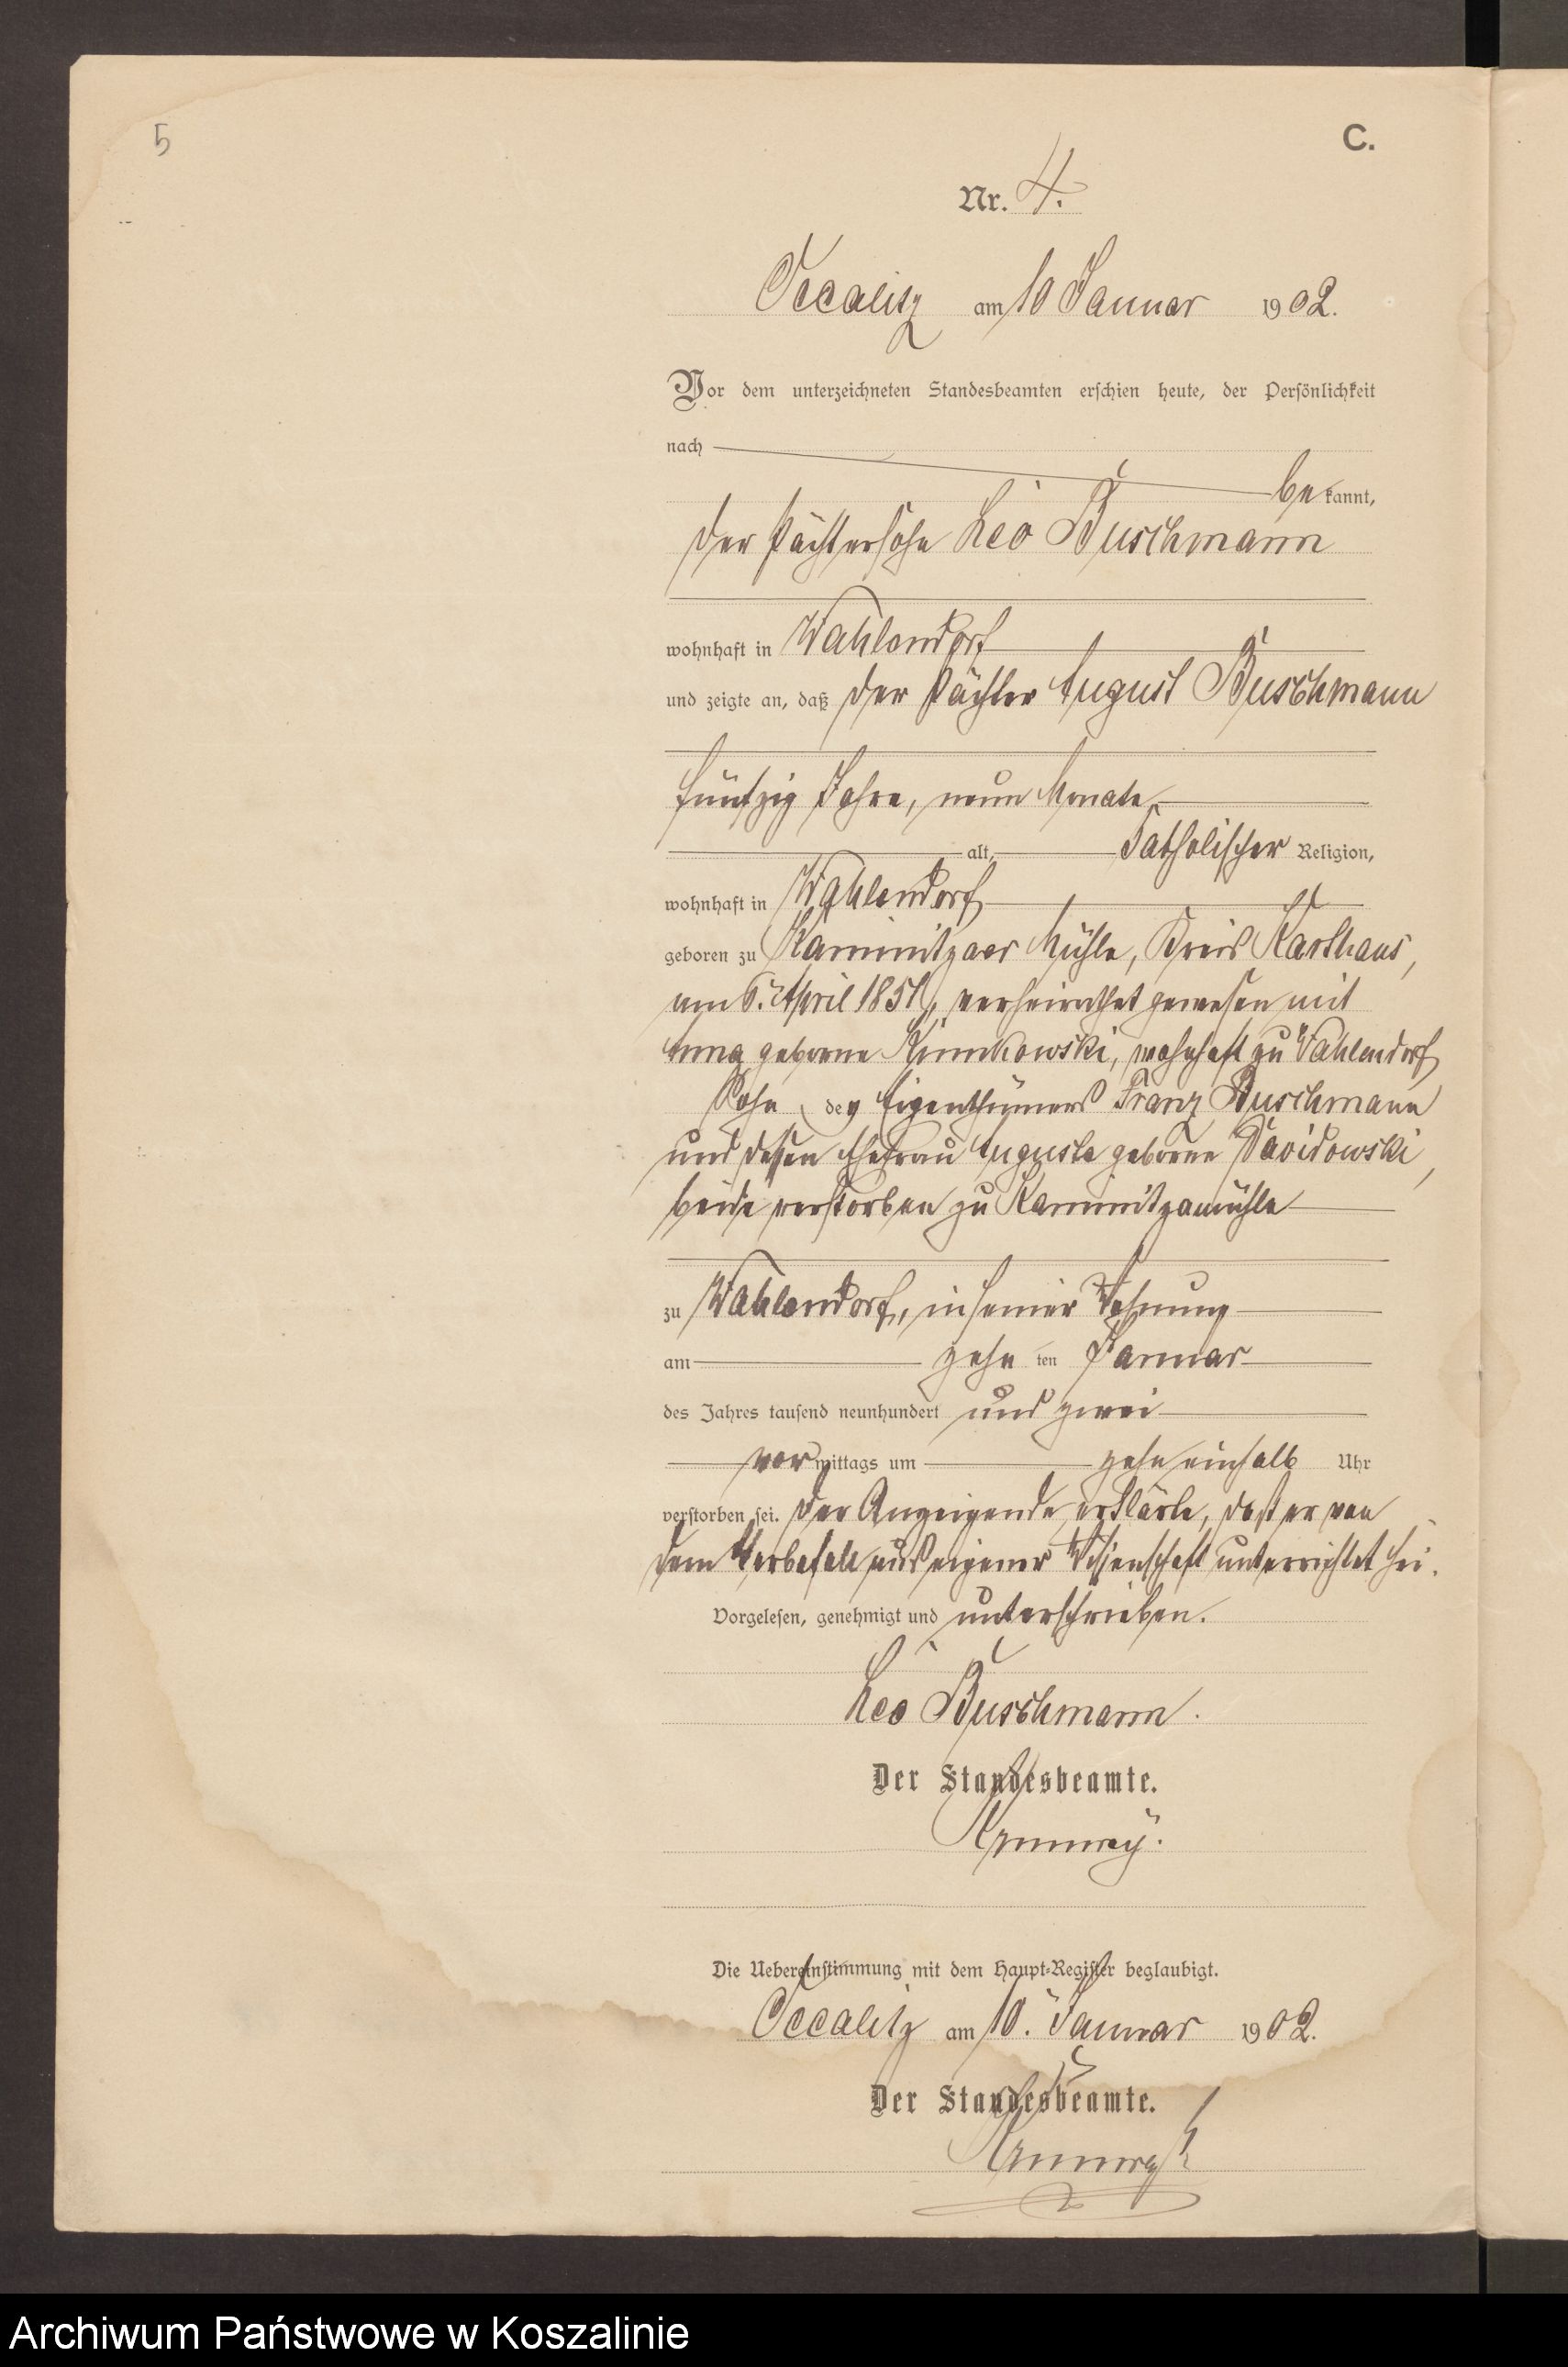 5
C.
Nr. 4.
Occalitz am 10 Januar 1902.
Vor dem unterzeichneten Standesbeamten erschien heute, der Persönlichkeit
nach
be kannt,
der Pächtersohn Leo Buschmann
wohnhaft in Wahlendorf
und zeigte an, daß der Pächter August Buschmann
fünfzig Jahre, neun Monate,
alt, katholischer Religion,
wohnhaft in Wahlendorf
geboren zu Kaminitzaer Mühle, Kreis Karthaus,
am 6. April 1851, verheirathet gewesen mit
Anna geborene wohnhaft zu Wahlendorf
Sohn des Eigenthümers Franz Buschmann
und dessen Ehefrau Auguste geborene Davidowski,
beide verstorben zu Kaminitzamühle
zu Wahlendorf, in seiner Wohnung
am zehn ten Januar
des Jahres tausend neunhundert und zwei
vor mittags um zehn einhalb Uhr
verstorben sei. Der Anzeigende erklärte, daß er von
dem Sterbefall aus eigener Wissenschaft unterrichtet sei.
Vorgelesen, genehmigt und unterschrieben.
Leo Buschmann.
Der Standesbeamte.
Die Uebereinstimmung mit dem Haupt-Register beglaubigt.
Occalitz am 10. Januar 1902.
Der Standesbeamte.
Archiwum Państwowe w Koszalinie